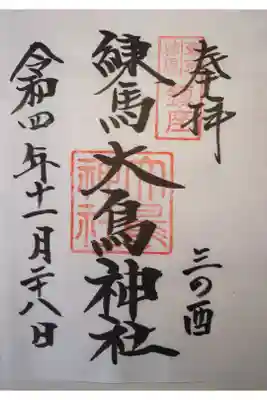 奉拝
三の酉
練馬大鳥神社
令和四年十一月二十八日